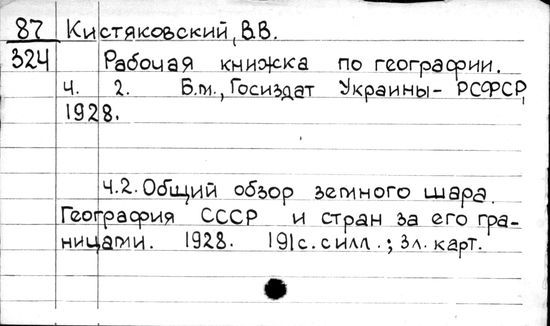 87 Кистяковский, В.В.
324 Рабочая книжка по географии.
ч. 2. Б.м., Госиздат Украины - РСФСР,
1928.
ч.2. Общий обзор земного шара.
География СССР и стран за его гра-
ницами. 1928. 191с. с илл.; 3л. карт.